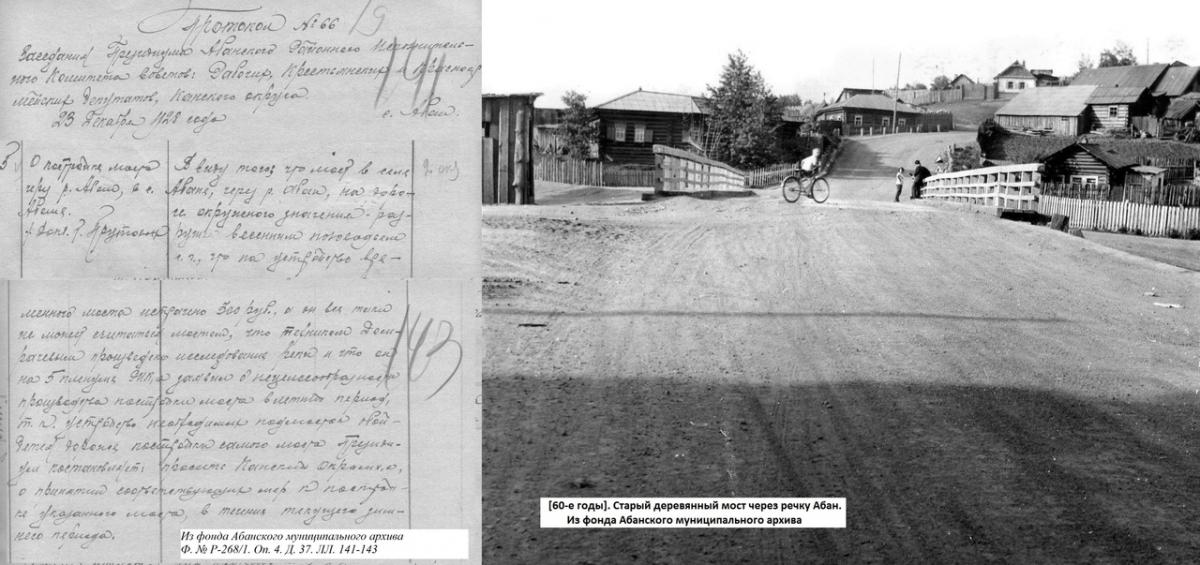 Протокол № 66
Заседания Президиума Абанского Районного Исполнитель-
ного Комитета Советов: Рабочих, Крестьянских и Красноар
мейских депутатов, Канского округа
23 декабря 1928 года
с. Абан.
141
5
О постройке моста
чер. р. Абан, в с.
Абане.
В виду того, что мост в селе
Абане, чер. р. Абан, на доро-
ге окружного значения раз-
рушен весенним половодьем
с. г., что на устройство вре-
менного моста истрачено 300 руб., а он все таки
не может считаться мостом, что техником
произведено исследование реки и что он
на 5 пленуме РИК,а заявил о нецелесообразности
производства постройки моста в летний период,
т. к. устройство необходимых подмостей обой-
дется дороже постройки самого моста Президи-
ум постановляет: просить Канский
о принятии соответствующих мер к построй-
ке указанного моста, в течении текущего зим-
него периода.
143
Из фонда Абанского муниципального архива
Ф. № Р-268/1. Оп. 4. Д. 37. ЛЛ. 141-143
[60-е годы]. Старый деревянный мост через речку Абан.
Из фонда Абанского муниципального архива